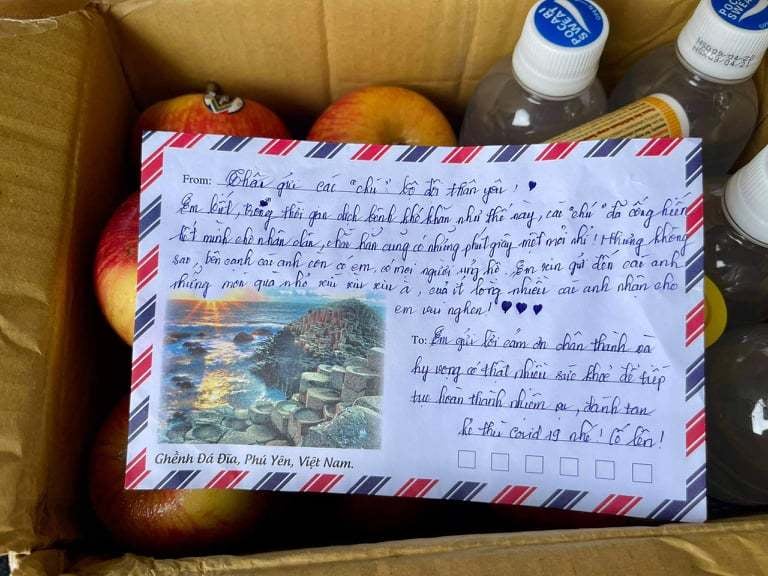 POCARI SWEAT
POCARI SWEAT
From: Thân gửi các "chú" bộ đội thân yêu! ♥
Em biết, trong thời gian dịch bệnh khó khăn như thế này, các "chú" đã cống hiến
hết mình cho nhân dân, chắc hẳn cũng có những phút giây mệt mỏi nhỉ! Nhưng không
sao, bên cạnh các anh còn có em, có mọi người ủng hộ. Em xin gửi đến các anh
những món quà nhỏ xíu xìu xiu ạ, quà ít lòng nhiều các anh nhận cho
em vui nghen! ♥♥♥
To: Em gửi lời cảm ơn chân thành và
hy vọng có thật nhiều sức khoẻ để tiếp
tục hoàn thành nhiệm vụ, đánh tan
kẻ thù covid 19 nhé! Cố lên!
Ghềnh Đá Đĩa, Phú Yên, Việt Nam.